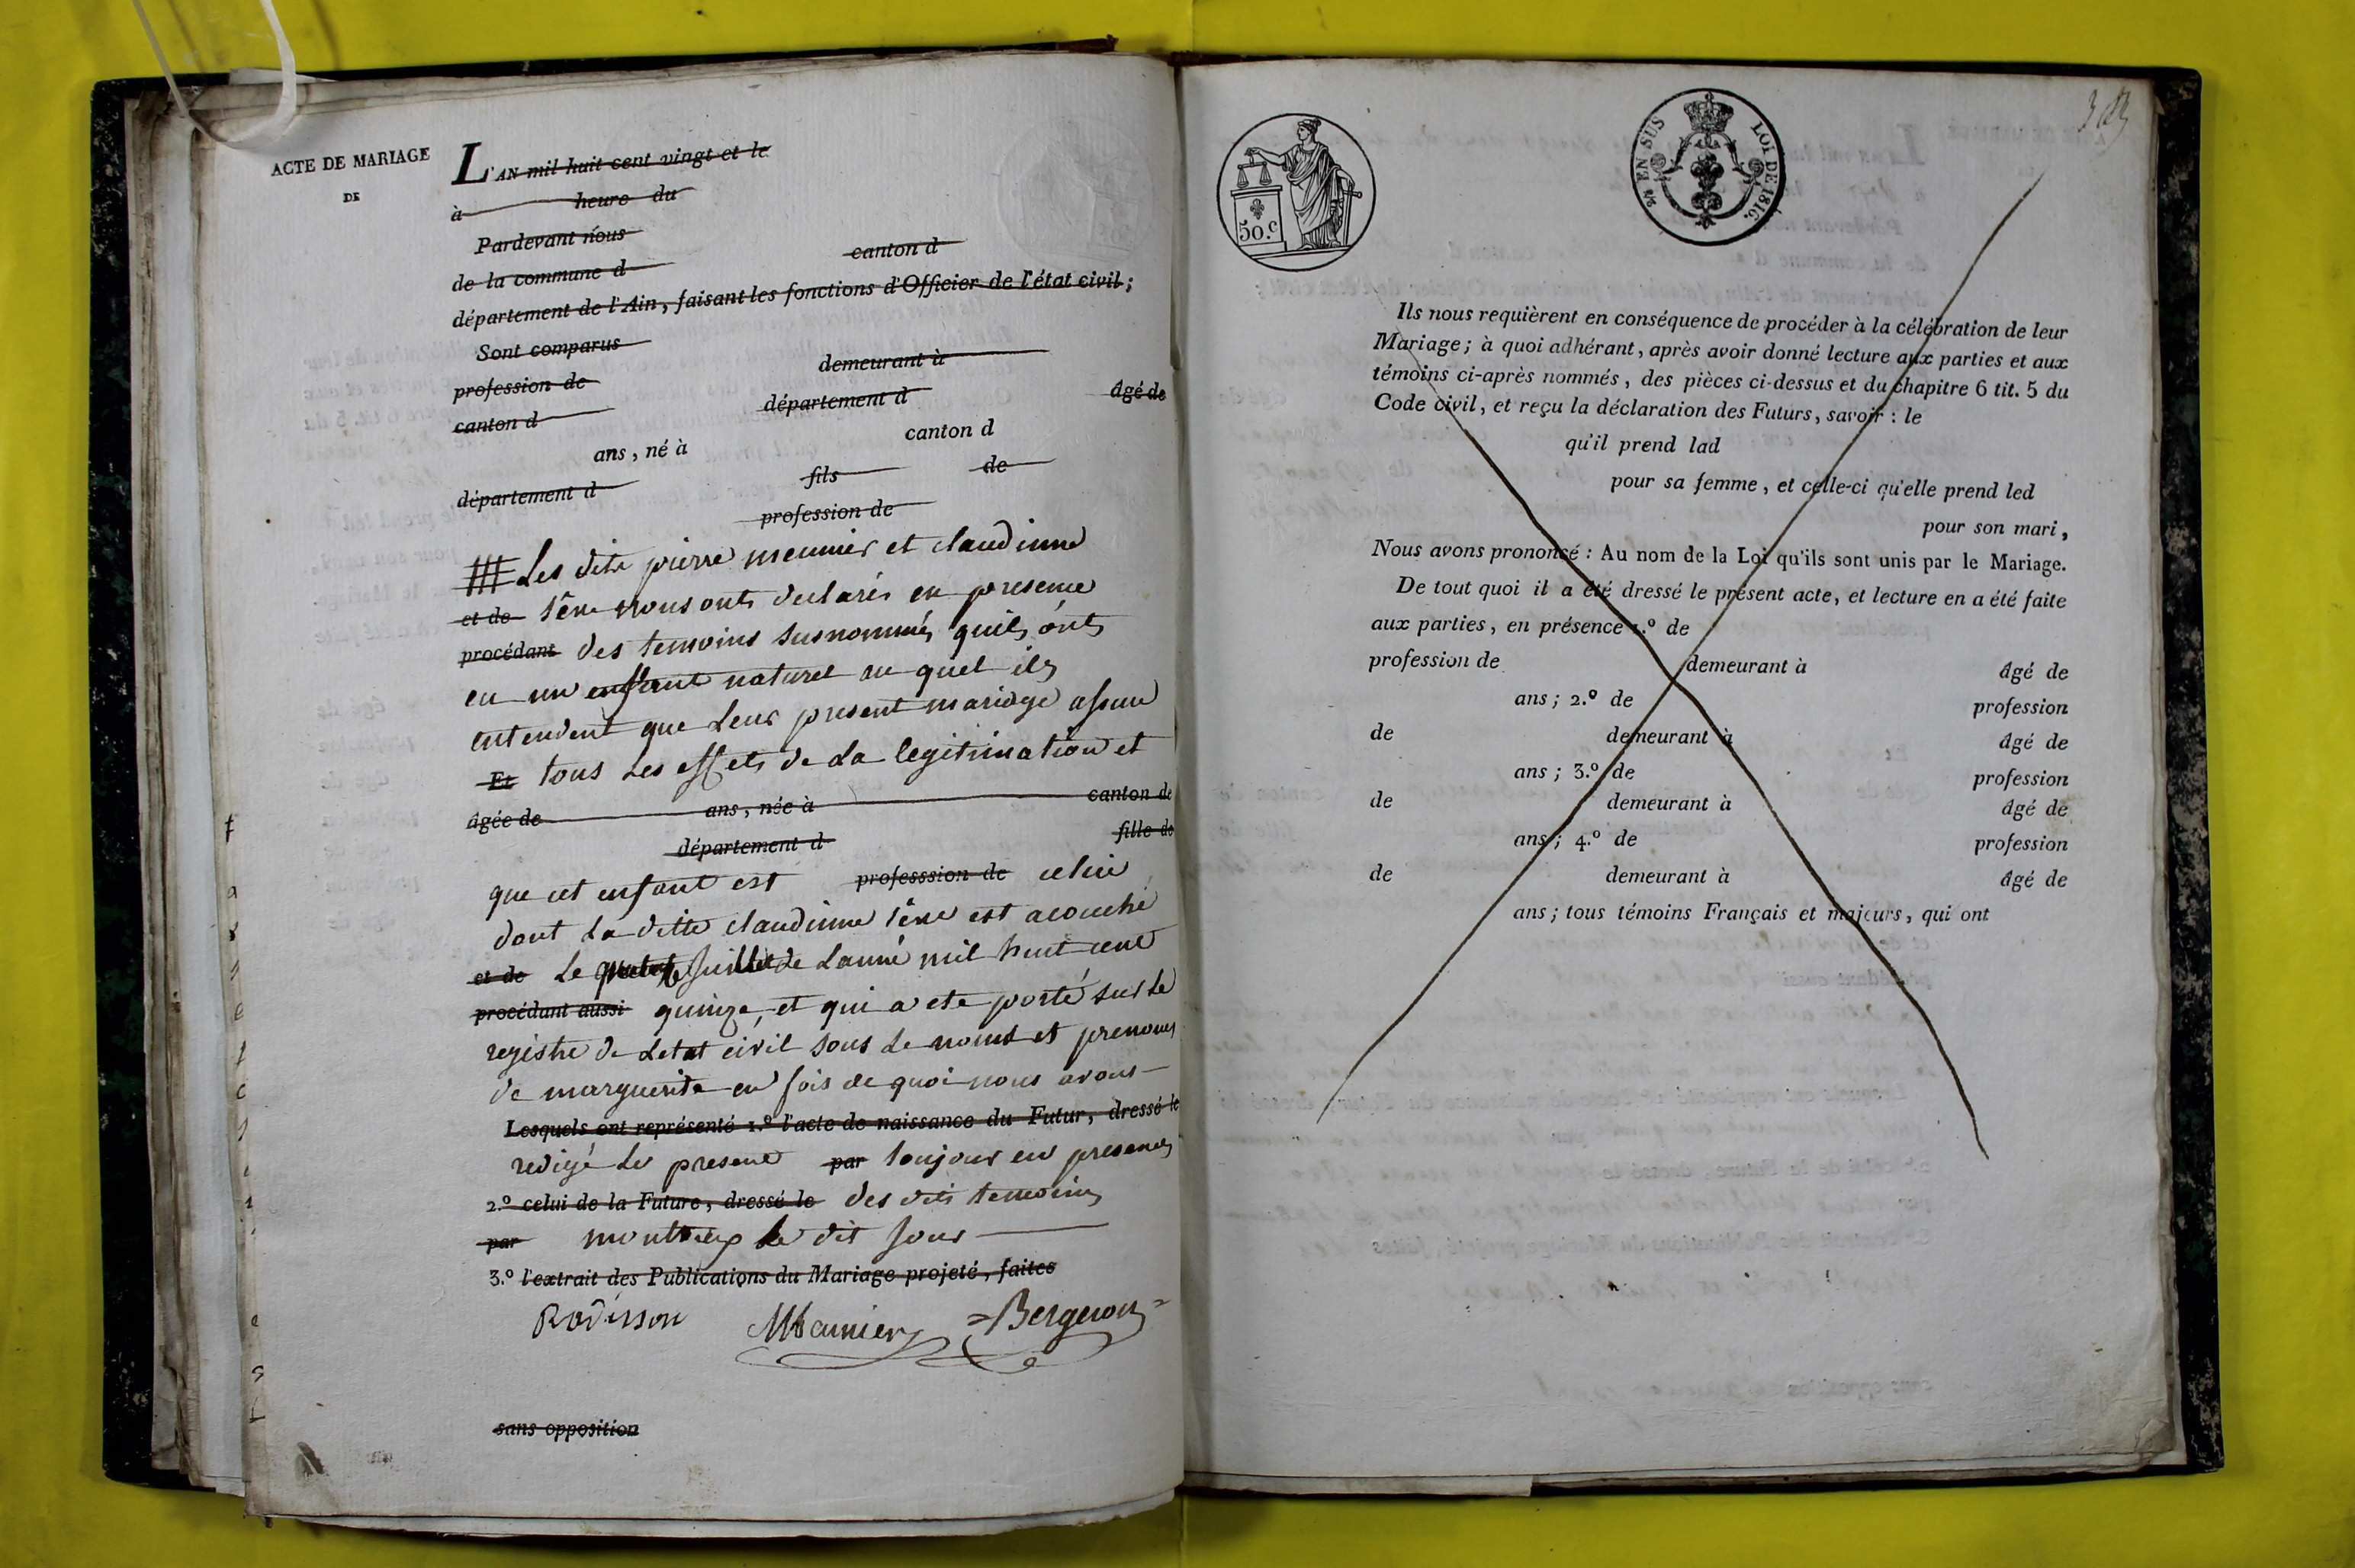 ACTE DE MARIAGE
DE
L'AN mil huit cent vingt et le
à heure du
Pardevant nous
de la commune d canton d
département de l'Ain, faisant les fonctions d'Officier de l'état civil ;
Sont comparus
profession de demeurant à
canton d département d âgé de
ans, né à canton d
département d fils de
profession de
Les dits pierre meunier et claudinne
et de nous onts declarés en presence
procédant des temoins susnommés quils onts
eu un enfant naturel au quel ils
entendent que Leur present mariage assure
Et tous Les effets de La legitimation et
âgée de ans, née à canton de
département d fille de
que cet enfant est professsion de celui
dont La ditte claudinne est acouché
et de Le juillet de Lanné mil huit cent
procédant aussi quinze, et qui a ete porté sur Le
registre de Letat civil sous Le noms et prenoms
de marguerite en fois de quoi nous avons
Lesquels ont représenté 1.º l'acte de naissance du Futur, dressé le
redigé Le presend par toujour en presences
2.º celui de la Future, dressé le des dits temoins
par le dit jour
3.º l'extrait des Publications du Mariage projeté, faites
Rodisson Meunier Bergeron
sans opposition
50.C
EN SUS LOI DE 1816.
Ils nous requièrent en conséquence de procéder à la célébration de leur
Mariage ; à quoi adhérant, après avoir donné lecture aux parties et aux
témoins ci-après nommés, des pièces ci-dessus et du chapitre 6 tit. 5 du
Code civil, et reçu la déclaration des Futurs, savoir : le
qu'il prend lad
pour sa femme, et celle-ci qu'elle prend led
pour son mari,
Nous avons prononcé : Au nom de la Loi qu'ils sont unis par le Mariage.
De tout quoi il a été dressé le présent acte, et lecture en a été faite
aux parties, en présence 1.º de
profession de demeurant à âgé de
ans ; 2.º de profession
de demeurant à âgé de
ans ; 3.º de profession
de demeurant à âgé de
ans ; 4.º de profession
de demeurant à âgé de
ans ; tous témoins Français et majeurs, qui ont